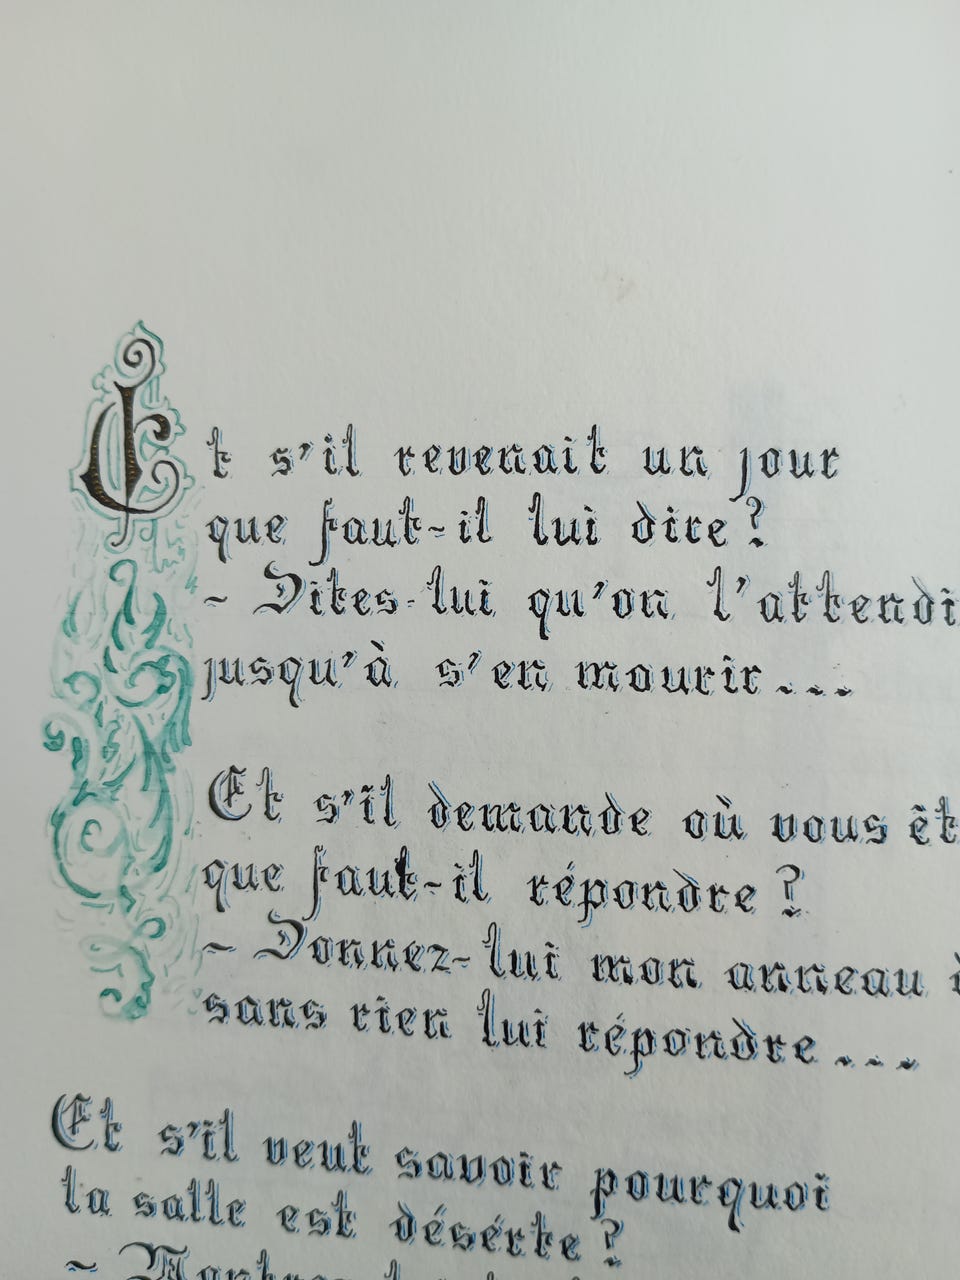 Et s'il revenait un jour
que faut-il lui dire ?
- Dites-lui qu'on l'attendi
jusqu'à s'en mourir...
Et s'il demande où vous êt
que faut-il répondre ?
- Donnez-lui mon anneau
sans rien lui répondre...
Et s'il veut savoir pourquoi
la salle est désérte ?
-